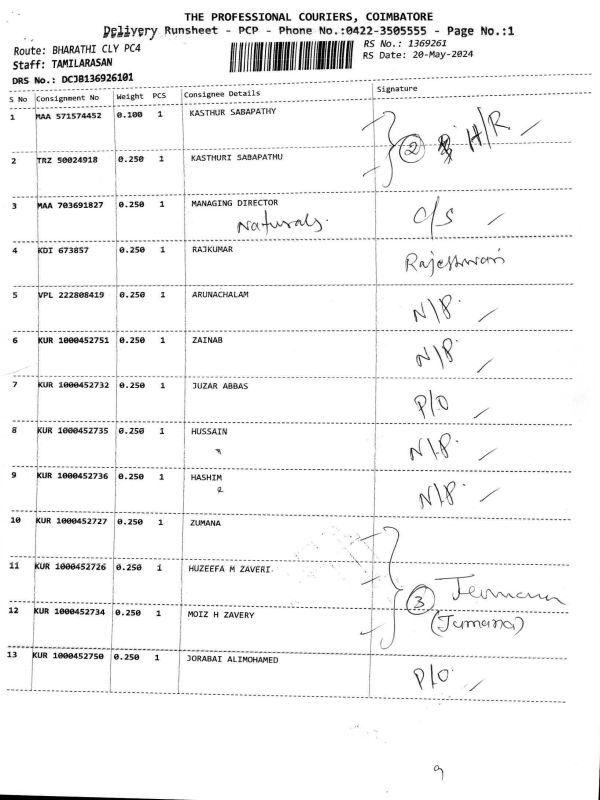 THE PROFESSIONAL COURIERS, COIMBATORE
Delivery Runsheet - PCP - Phone No.:0422-3505555 - Page No.:1
Route: BHARATHI CLY PC4
RS No.: 1369261
Staff: TAMILARASAN
RS Date: 20-May-2024
DRS No.: DCJB136926101
S No Consignment No Weight PCS Consignee Details Signature
1 MAA 571574452 0.100 1 KASTHUR SABAPATHY
2 H/R
2 TRZ 50024918 0.250 1 KASTHURI SABAPATHU
3 MAA 703691827 0.250 1 MANAGING DIRECTOR
Naturals. C/S
4 KDI 673857 0.250 1 RAJKUMAR Rajeshwari
5 VPL 222808419 0.250 1 ARUNACHALAM N/P.
6 KUR 1000452751 0.250 1 ZAINAB N/P.
7 KUR 1000452732 0.250 1 JUZAR ABBAS P/O
8 KUR 1000452735 0.250 1 HUSSAIN N/P.
9 KUR 1000452736 0.250 1 HASHIM N/P.
10 KUR 1000452727 0.250 1 ZUMANA
11 KUR 1000452726 0.250 1 HUZEEFA M ZAVERI
3
12 KUR 1000452734 0.250 1 MOIZ H ZAVERY (Jumana)
13 KUR 1000452750 0.250 1 JORABAI ALIMOHAMED P/O.
9